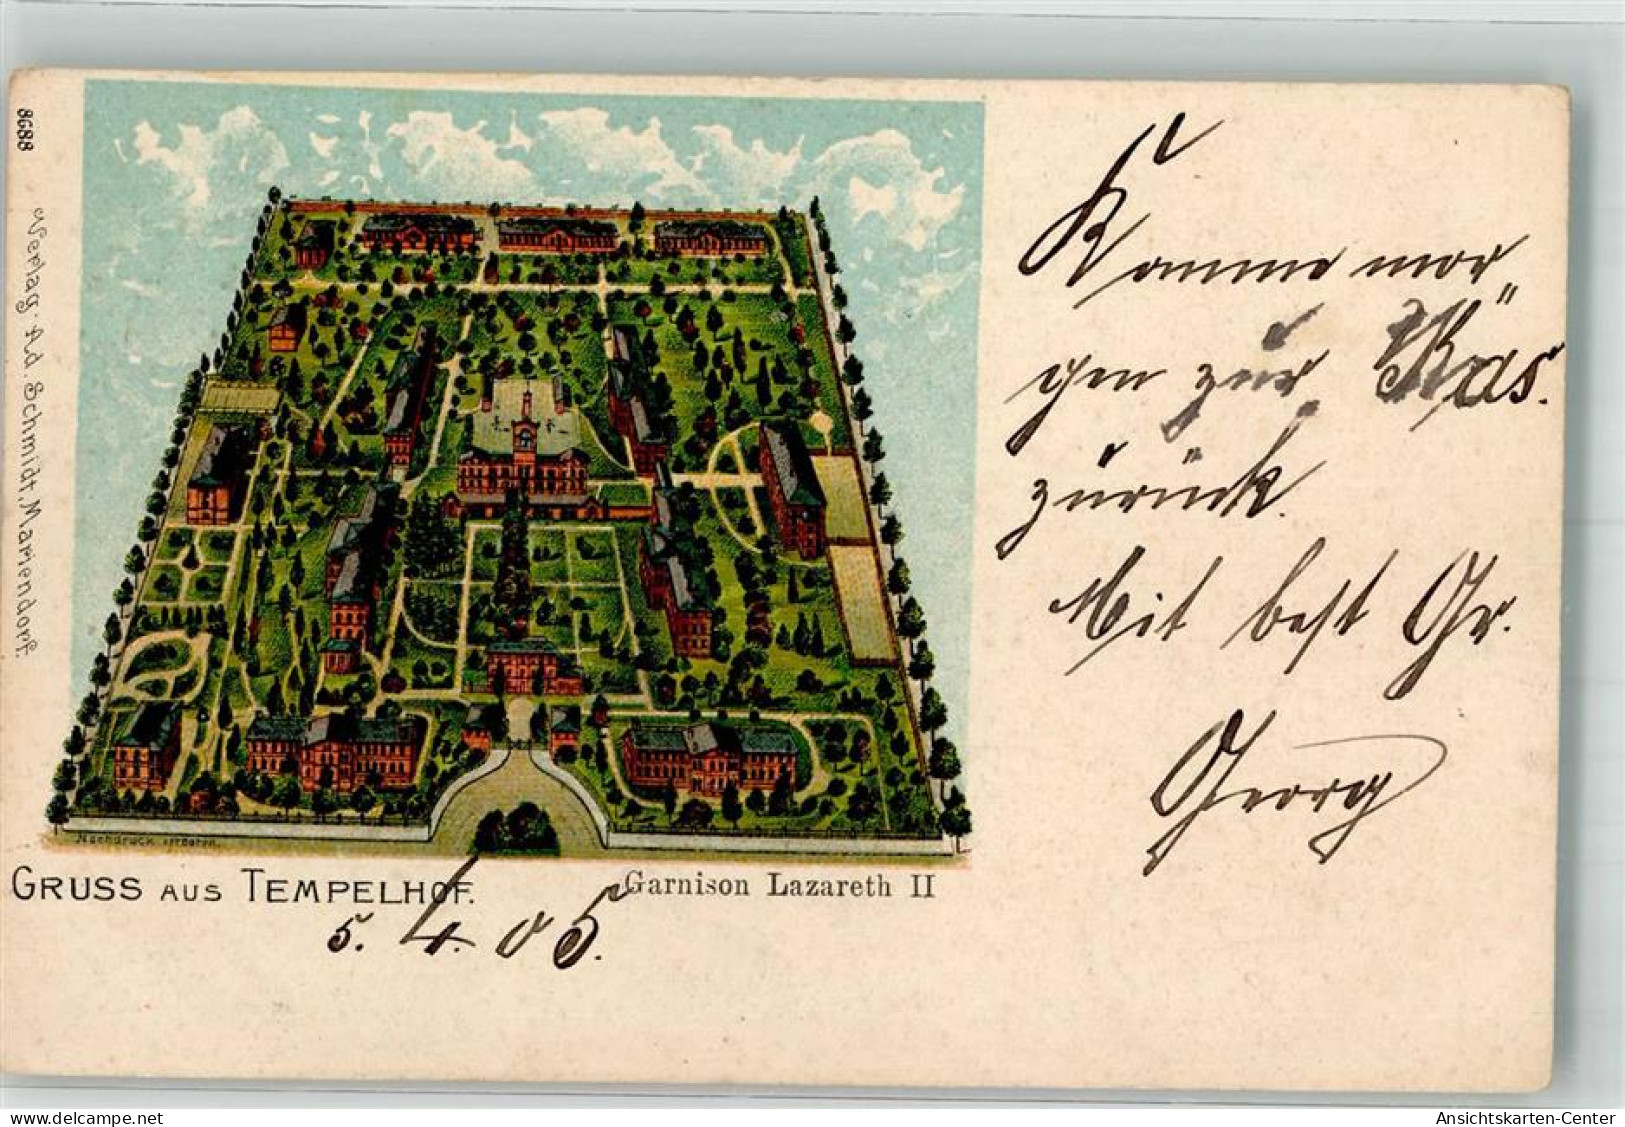 8688
Verlag: Ad. Schmidt, Mariendorf.
Nachdruck verboten.
GRUSS AUS TEMPELHOF.
Garnison Lazareth II
5. 4. 05.
Komme mor„
gen zur Kas.
zurück.
Mit best Gr.
Georg
Ansichtskarten-Center